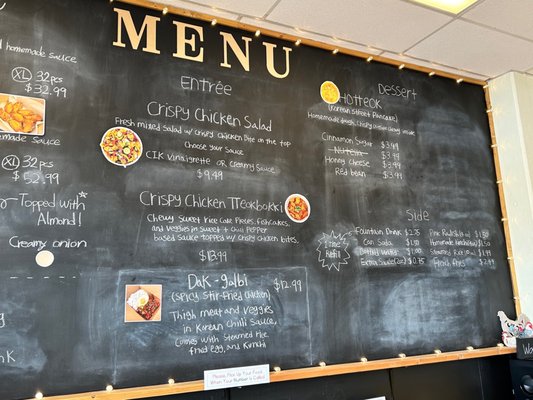 MENU
homemade sauce
XL 32pcs
$32.99
sauce
XL 32pcs
$52.99
Topped with
Almond!
Creamy onion
Entrée
Crispy Chicken Salad
Fresh mixed salad w/ crispy chicken bite on the top
Choose your sauce
CIK vinaigrette or creamy sauce
$9.49
Crispy Chicken Tteokbokki
Chewy sweet rice cake pieces, fishcakes,
and veggies in sweet + chili pepper
based sauce topped w/ crispy chicken bites.
$13.99
Dak-galbi
$12.99
(Spicy stir-fried chicken)
Thigh meat and veggies
in Korean chilli sauce,
comes with steamed rice
fried egg, and kimchi
Dessert
Hotteok
(Korean street pancake)
Homemade dough, crispy outside chewy inside
Cinnamon sugar $3.99
Nutella $3.99
Honey cheese $3.99
Red bean $3.99
Side
1 time
Refill
Fountain Drink $2.75
Can Soda $1.50
Bottled water $1.00
Extra sauce $0.75
Pink Radish $1.50
Homemade $1.50
Steamed Rice
French fries $2.99
Please Pick Up Your Food
When Your Number